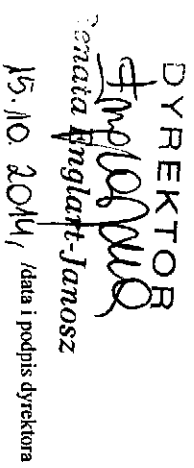 DYREKTOR
Renata Englart-Janosz
15.10.2014, /data i podpis dyrektora